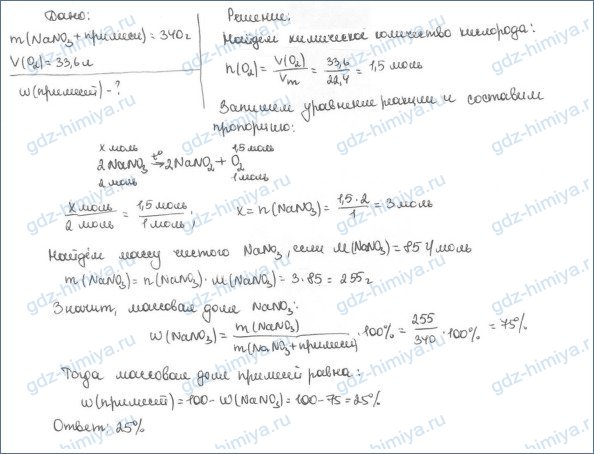 Дано:
m(NaNO₃ + примеси) = 340 г
V(O₂) = 33,6 л
w(примесей) - ?
Решение:
Найдём химическое количество кислорода:
n(O₂) = V(O₂)/Vm = 33,6/22,4 = 1,5 моль
Запишем уравнение реакции и составим
пропорцию:
x моль 1,5 моль
2NaNO₃ t°→ 2NaNO₂ + O₂
2 моль 1 моль
x моль/2 моль = 1,5 моль/1 моль; x = n(NaNO₃) = 1,5·2/1 = 3 моль
Найдём массу чистого NaNO₃, если M(NaNO₃) = 85 г/моль
m(NaNO₃) = n(NaNO₃)·M(NaNO₃) = 3·85 = 255 г
Значит, массовая доля NaNO₃:
w(NaNO₃) = m(NaNO₃)/m(NaNO₃ + примеси) · 100% = 255/340 · 100% = 75%
Тогда массовая доля примесей равна:
w(примесей) = 100 - w(NaNO₃) = 100 - 75 = 25%
Ответ: 25%
gdz-himiya.ru